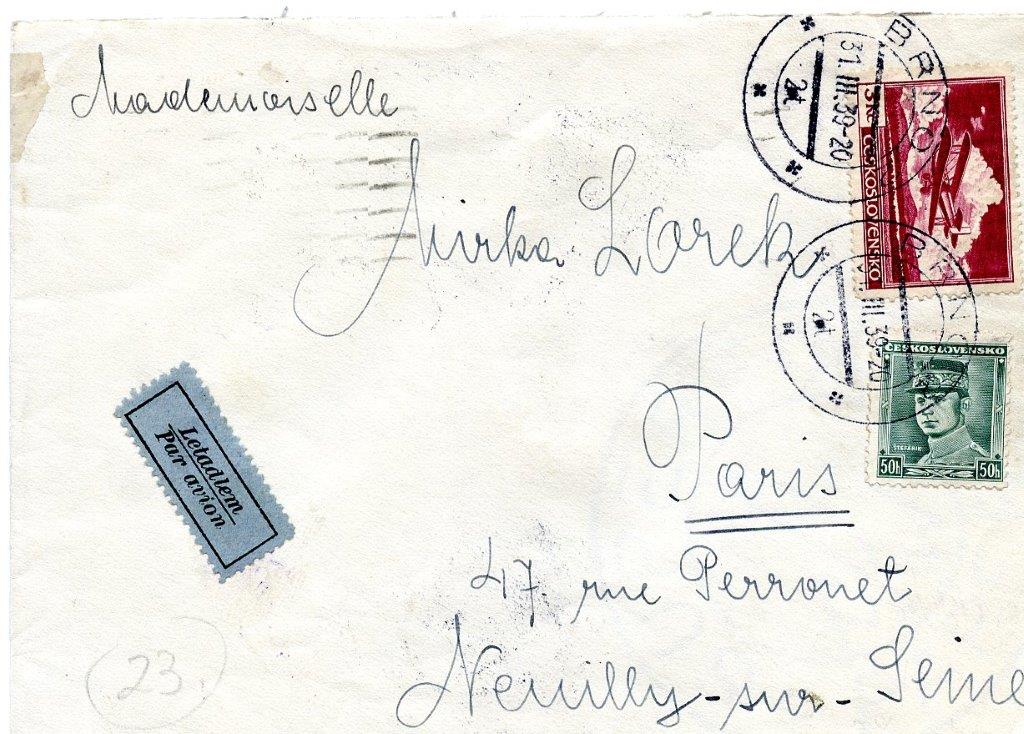 Mademoiselle
Mirka Lorek
Paris
47 rue Perronet
Neuilly-sur-Seine
Letadlem
Par avion
23.
BRNO
31.III.39-20
2t
3 Kč ČESKOSLOVENSKO
BRNO
III.39-20
2t
ČESKOSLOVENSKO
ŠTEFÁNIK
50h 50h